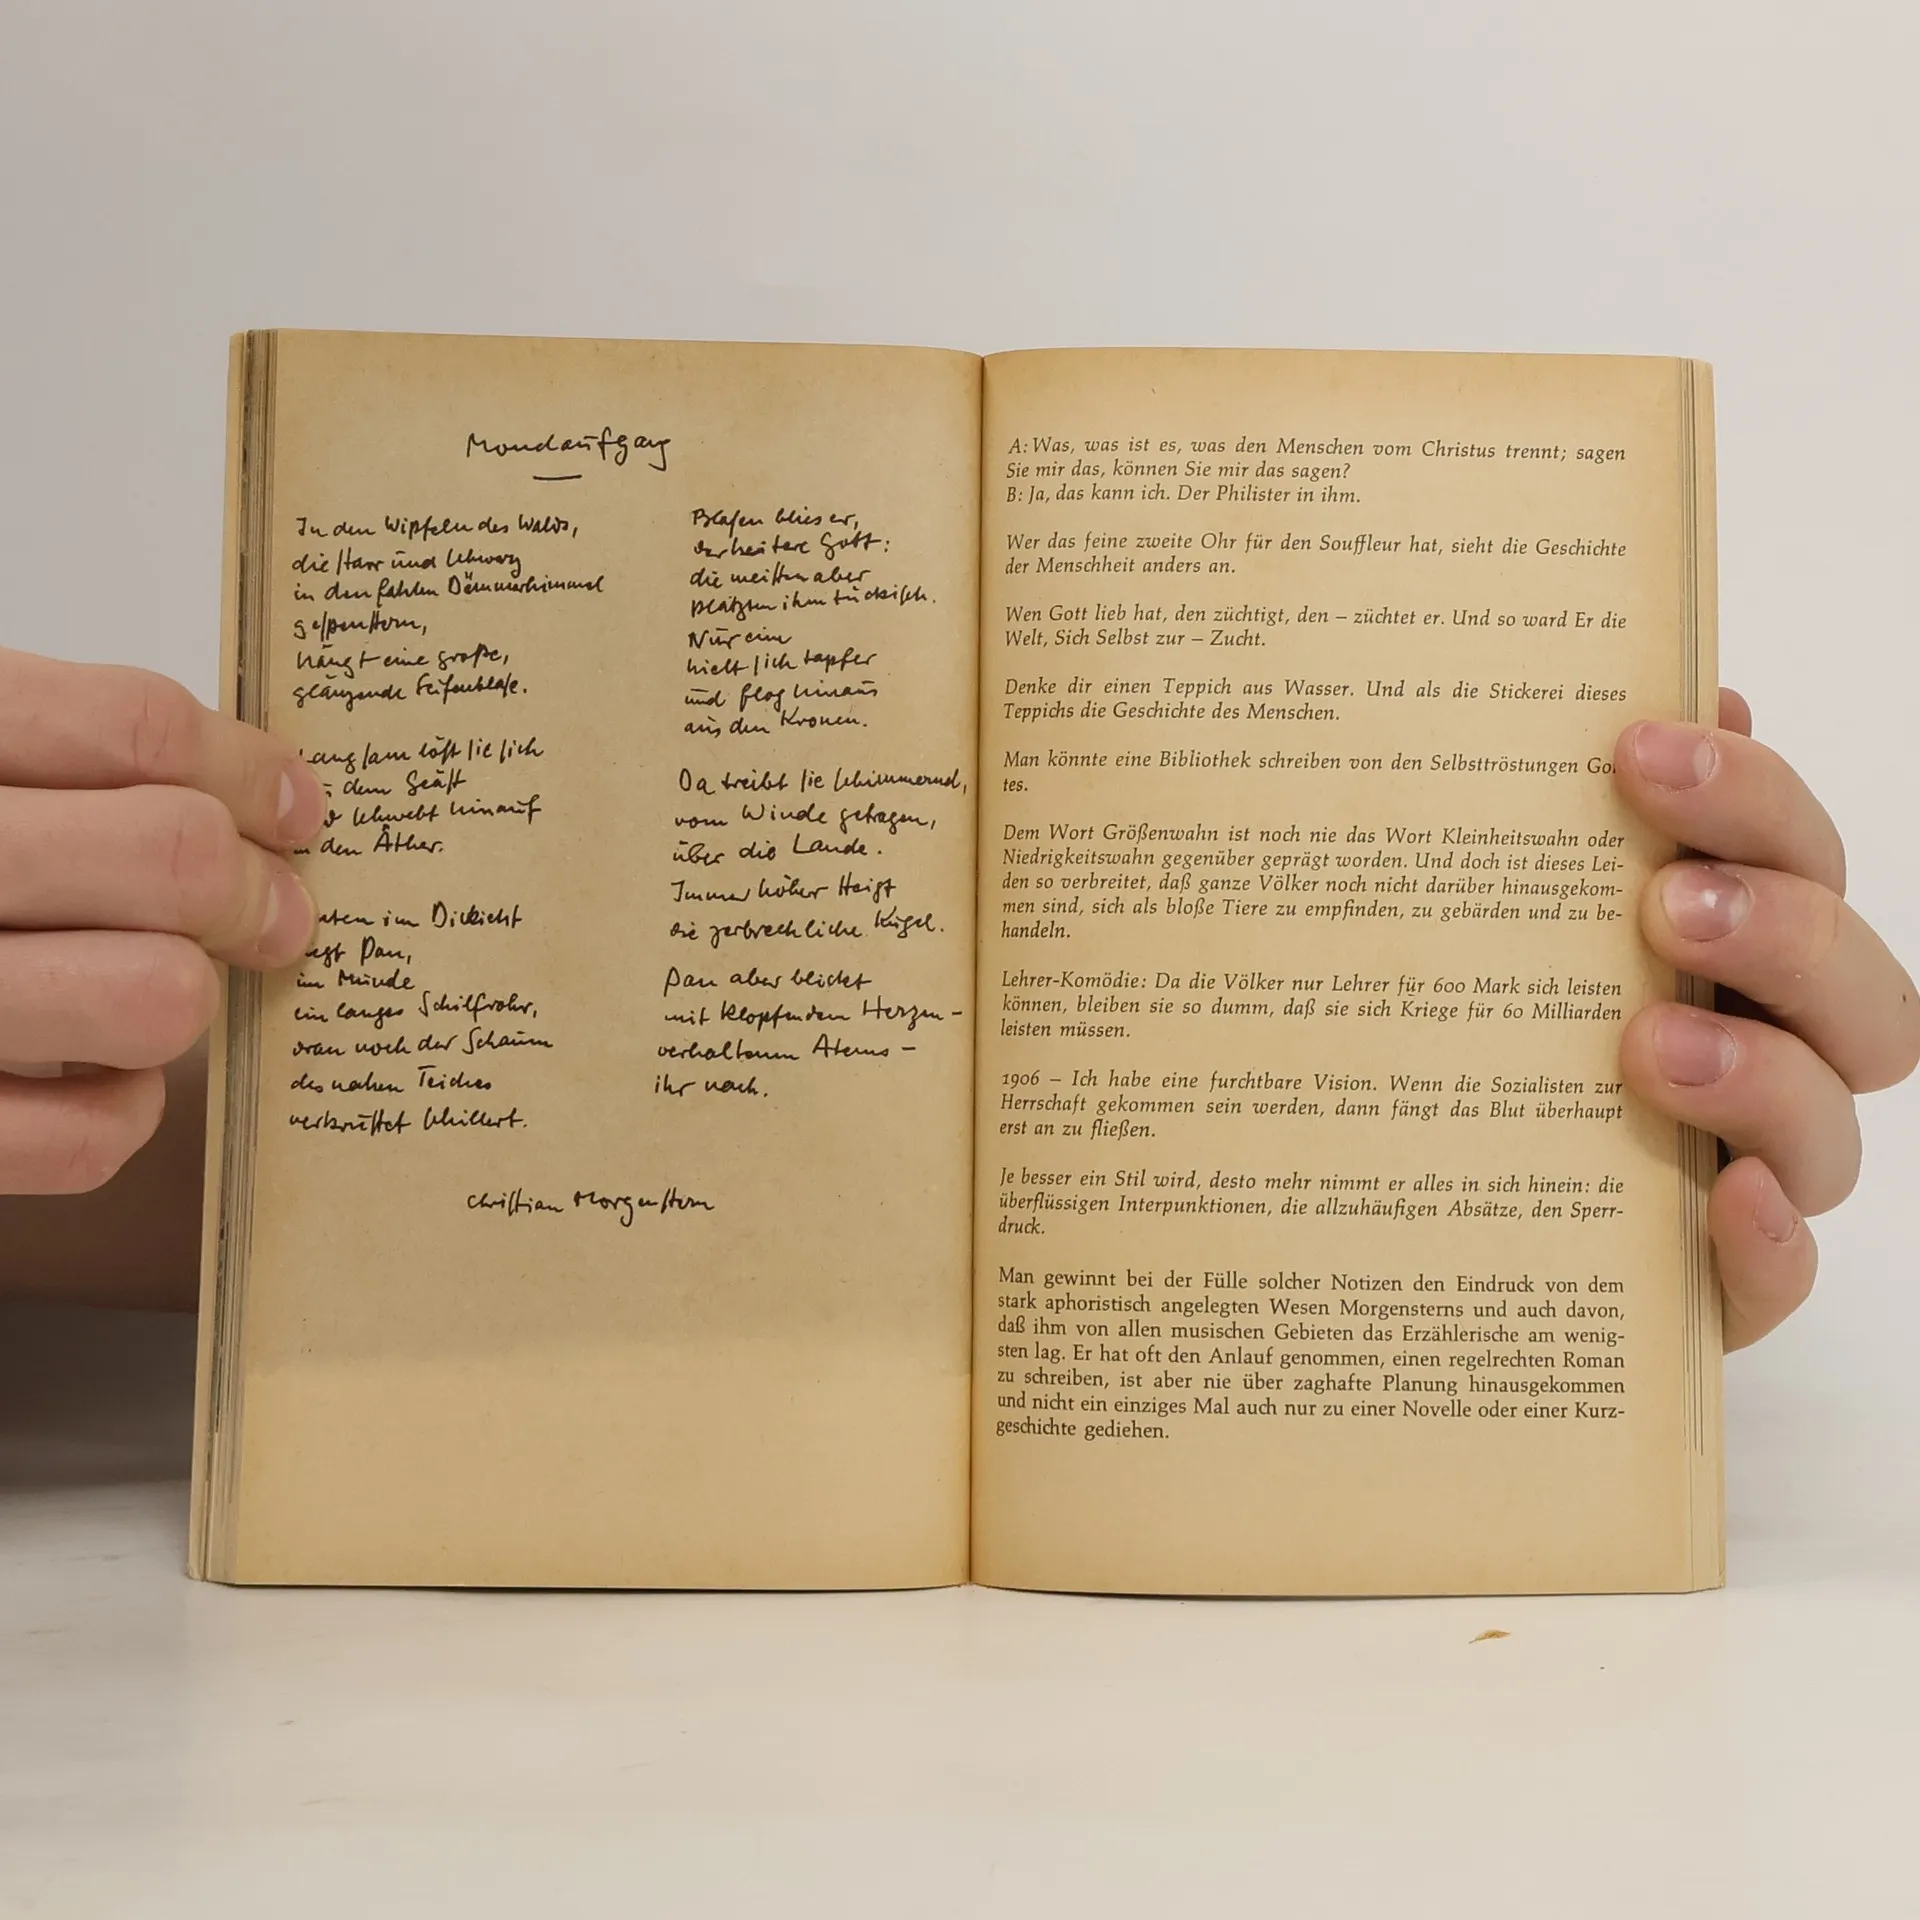 Mondaufgang
In den Wipfeln des Walds,
die starr und schwarz
in den fahlen Dämmerhimmel
gespenstern,
hängt eine große,
glänzende Seifenblase.
Langsam löst sie sich
dem Geäst
schwebt hinauf
den Äther.
im Dickicht
Pan,
im Munde
ein langes Schilfrohr,
dran noch der Schaum
des nahen Teiches
verkrustet schillert.
Blasen blies er,
der heitere Gott:
die meisten aber
platzten ihm tückisch.
Nur eine
hielt sich tapfer
und flog hinaus
aus den Kronen.
Da treibt sie schimmernd,
vom Winde getragen,
über die Lande.
Immer höher steigt
die zerbrechliche Kugel.
Pan aber blickt
mit klopfendem Herzen –
verhaltenen Atems –
ihr nach.
Christian Morgenstern
A: Was, was ist es, was den Menschen vom Christus trennt; sagen
Sie mir das, können Sie mir das sagen?
B: Ja, das kann ich. Der Philister in ihm.
Wer das feine zweite Ohr für den Souffleur hat, sieht die Geschichte
der Menschheit anders an.
Wen Gott lieb hat, den züchtigt, den – züchtet er. Und so ward Er die
Welt, Sich Selbst zur – Zucht.
Denke dir einen Teppich aus Wasser. Und als die Stickerei dieses
Teppichs die Geschichte des Menschen.
Man könnte eine Bibliothek schreiben von den Selbsttröstungen Got-
tes.
Dem Wort Größenwahn ist noch nie das Wort Kleinheitswahn oder
Niedrigkeitswahn gegenüber geprägt worden. Und doch ist dieses Lei-
den so verbreitet, daß ganze Völker noch nicht darüber hinausgekom-
men sind, sich als bloße Tiere zu empfinden, zu gebärden und zu be-
handeln.
Lehrer-Komödie: Da die Völker nur Lehrer für 600 Mark sich leisten
können, bleiben sie so dumm, daß sie sich Kriege für 60 Milliarden
leisten müssen.
1906 – Ich habe eine furchtbare Vision. Wenn die Sozialisten zur
Herrschaft gekommen sein werden, dann fängt das Blut überhaupt
erst an zu fließen.
Je besser ein Stil wird, desto mehr nimmt er alles in sich hinein: die
überflüssigen Interpunktionen, die allzuhäufigen Absätze, den Sperr-
druck.
Man gewinnt bei der Fülle solcher Notizen den Eindruck von dem
stark aphoristisch angelegten Wesen Morgensterns und auch davon,
daß ihm von allen musischen Gebieten das Erzählerische am wenig-
sten lag. Er hat oft den Anlauf genommen, einen regelrechten Roman
zu schreiben, ist aber nie über zaghafte Planung hinausgekommen
und nicht ein einziges Mal auch nur zu einer Novelle oder einer Kurz-
geschichte gediehen.